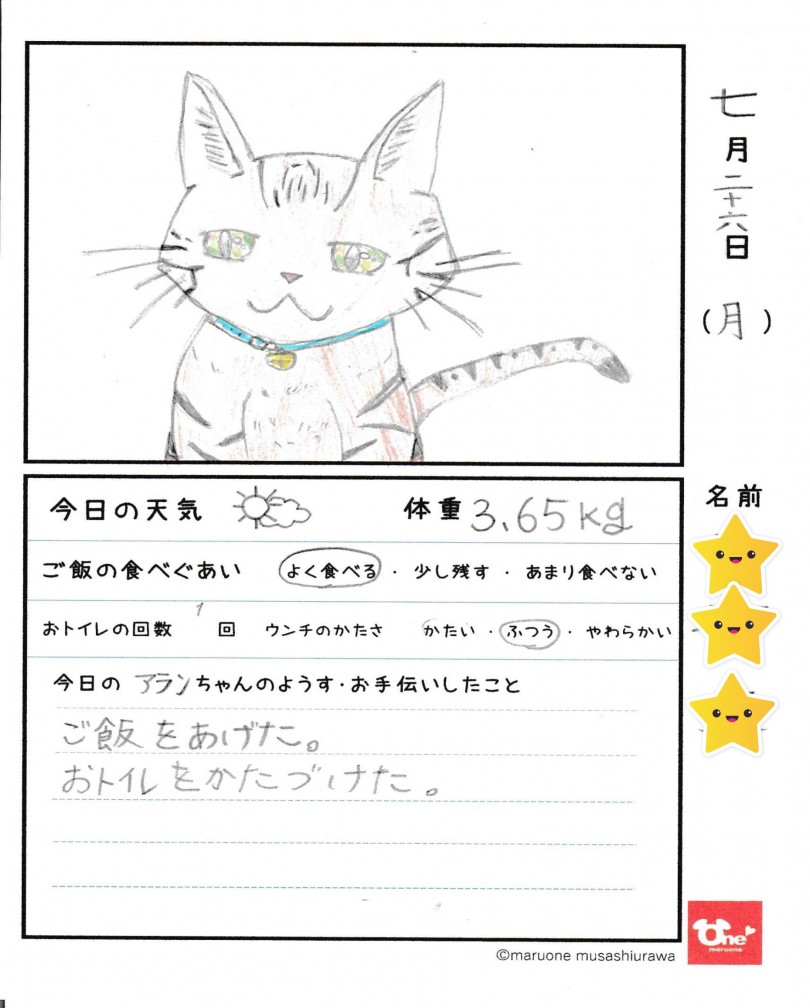 七月二十六日(月)
名前
今日の天気 体重 3.65kg
ご飯の食べぐあい よく食べる・少し残す・あまり食べない
おトイレの回数 1 回 ウンチのかたさ かたい・ふつう・やわらかい
今日の アランちゃんのようす・お手伝いしたこと
ご飯をあげた。
おトイレをかたづけた。
One
maruone
©maruone musashiurawa